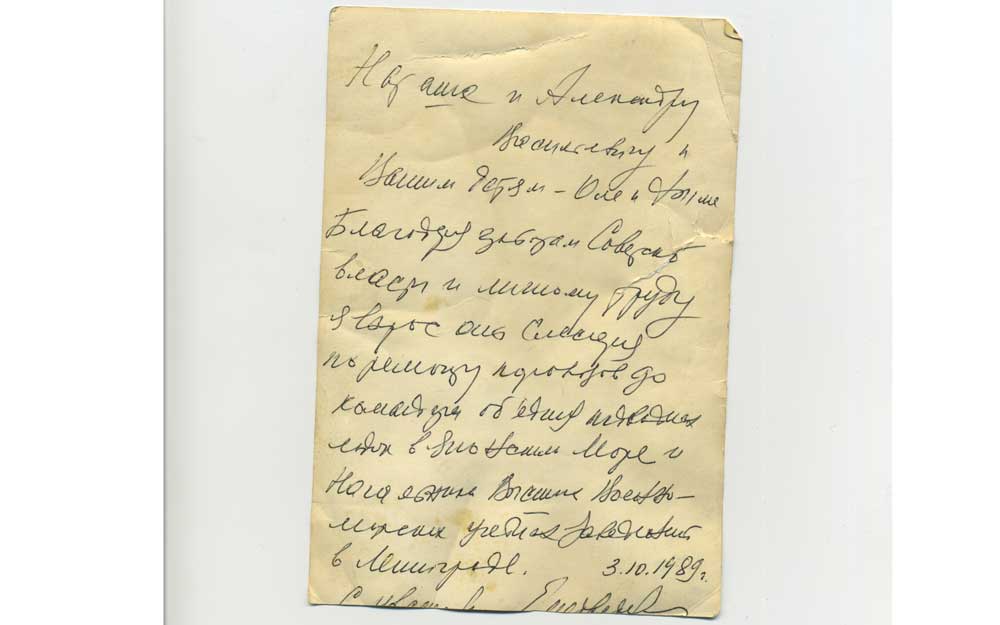 Наташе и Александру
Васильевичу и
Вашим детям – Оле и
Благодаря заботам Советской
власти и личному труду
я вырос от слесаря
по ремонту паровозов до
командира объедин подводных
лодок в Японском море и
Начальника Высших Военно-
морских учебных заведений
в Ленинграде. 3.10.1989г.